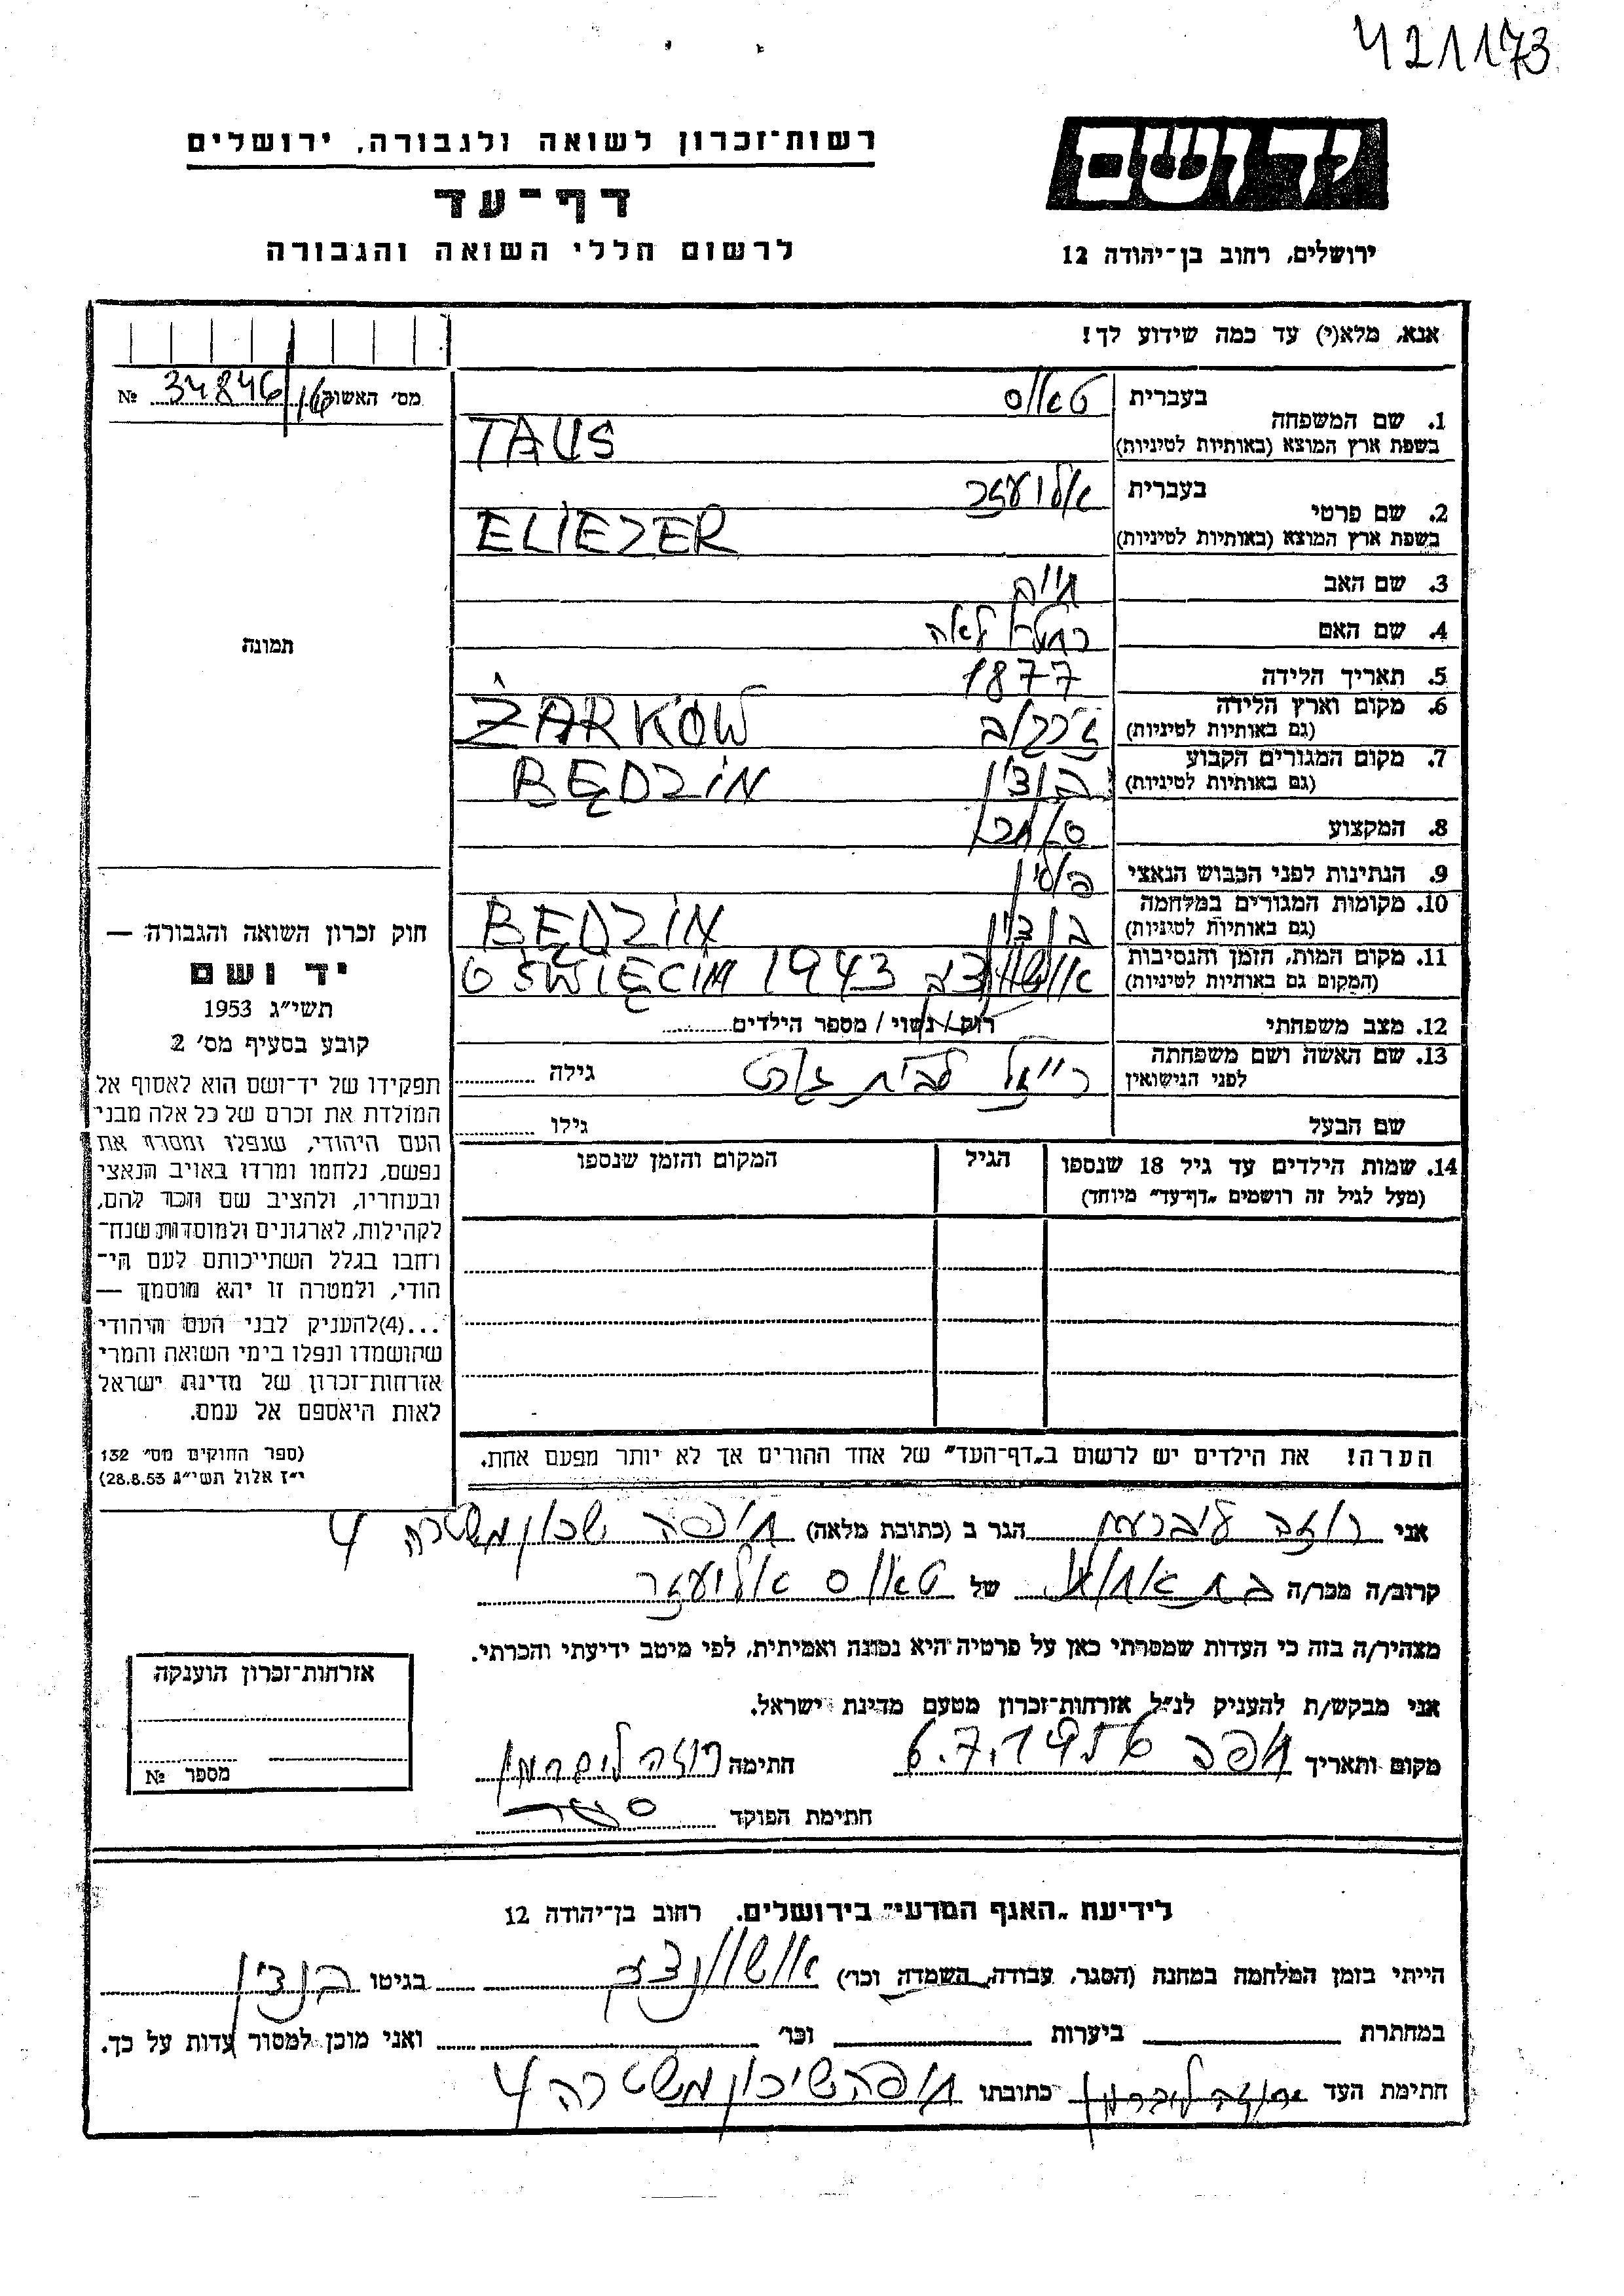 421173
רשות־זכרון לשואה ולגבורה, ירושלים
דף־עד
לרשום חללי השואה והגבורה
יד ושם
ירושלים, רחוב בן־יהודה 12
אנא, מלא(י) עד כמה שידוע לך!
מס׳ האשור 34846/16 №
תמונה
1. שם המשפחה בעברית טאוס
בשפת ארץ המוצא (באותיות לטיניות) TAUS
2. שם פרטי בעברית אליעזר
בשפת ארץ המוצא (באותיות לטיניות) ELIEZER
3. שם האב חיים
4. שם האם לאה
5. תאריך הלידה 1877
6. מקום וארץ הלידה ז׳רקוב ŻARKÓW
(גם באותיות לטיניות)
7. מקום המגורים הקבוע בנדין BĘDZIN
(גם באותיות לטיניות)
8. המקצוע סוחר
9. הנתינות לפני הכבוש הנאצי פולין
10. מקומות המגורים במלחמה בנדין BĘDZIN
(גם באותיות לטיניות)
11. מקום המות, הזמן והנסיבות אושוונצים OŚWIĘCIM 1943
(המקום גם באותיות לטיניות)
12. מצב משפחתי רווק / נשוי / מספר הילדים
13. שם האשה ושם משפחתה לבית גילה
לפני הנישואין
שם הבעל גילו
14. שמות הילדים עד גיל 18 שנספו הגיל המקום והזמן שנספו
(מעל לגיל זה רושמים „דף־עד״ מיוחד)
הערה! את הילדים יש לרשום ב„דף־העד״ של אחד ההורים אך לא יותר מפעם אחת.
חוק זכרון השואה והגבורה —
יד ושם
תשי״ג 1953
קובע בסעיף מס׳ 2
תפקידו של יד־ושם הוא לאסוף אל
המולדת את זכרם של כל אלה מבני
העם היהודי, שנפלו ומסרו את
נפשם, נלחמו ומרדו באויב הנאצי
ובעוזריו, ולהציב שם וזכר להם,
לקהילות, לארגונים ולמוסדות שנח־
רחבו בגלל השתייכותם לעם הי־
הודי, ולמטרה זו יהא מוסמך —
...(4)להעניק לבני העם היהודי
שהושמדו ונפלו בימי השואה והמרי
אזרחות־זכרון של מדינת ישראל
לאות היאספם אל עמם.
(ספר החוקים מס׳ 132
י״ז אלול תשי״ג 28.8.53)
אני רוזה ליברמן הגר ב (כתובת מלאה) חיפה שכון משטרה 4
קרוב/ה מכר/ה בת של טאוס אליעזר
מצהיר/ה בזה כי העדות שמסרתי כאן על פרטיה היא נכונה ואמיתית, לפי מיטב ידיעתי והכרתי.
אני מבקש/ת להעניק לנ״ל אזרחות־זכרון מטעם מדינת ישראל.
מקום ותאריך חיפה 6.7.1956 חתימה רוזה ליברמן
חתימת הפוקד
אזרחות־זכרון הוענקה
מספר №
לידיעת „האגף המדעי״ בירושלים, רחוב בן־יהודה 12
הייתי בזמן המלחמה במחנה (הסגר, עבודה, השמדה וכו׳) אושוונצים בגיטו בנדין
במחתרת ביערות וכו׳ ואני מוכן למסור עדות על כך.
חתימת העד רוזה ליברמן כתובתו חיפה שיכון משטרה 4